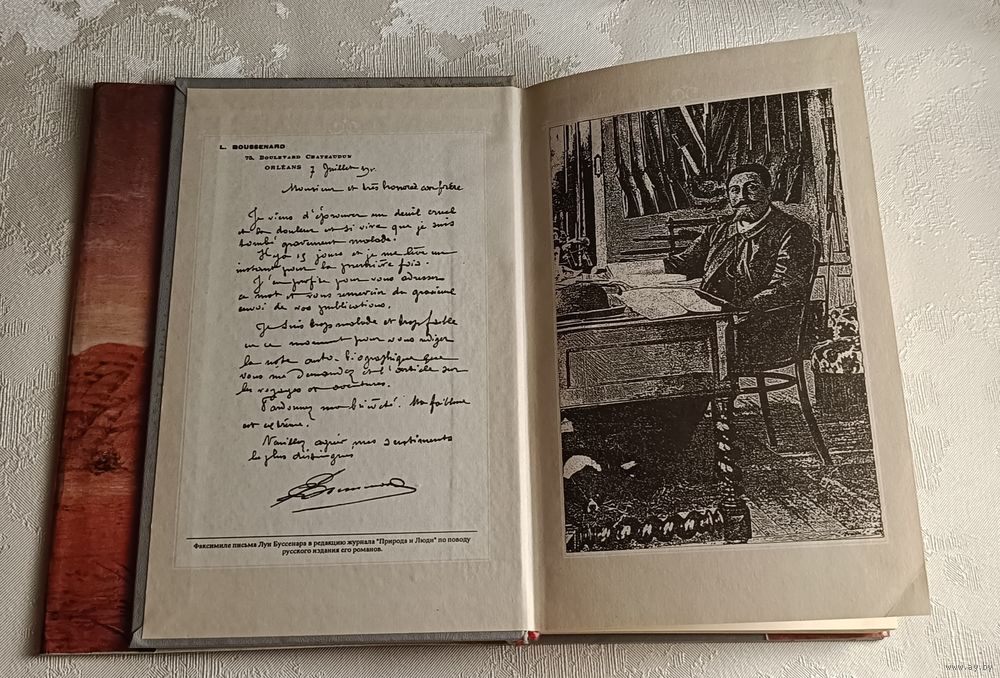 L. BOUSSENARD
75, BOULEVARD CHATEAUDUN
ORLÉANS 7 Juillet
Monsieur et très honoré confrère
Je viens d'éprouver un deuil cruel
et la douleur est si vive que je suis
tombé gravement malade.
Il y a 15 jours et je me lève un
instant pour la première fois.
J'en profite pour vous adresser
ce mot et vous remercier du gracieux
envoi de vos publications.
Je suis trop malade et trop faible
en ce moment pour vous rédiger
la note auto-biographique que
vous me demandez et l'article sur
les voyages et aventures.
Pardonnez ma brièveté. Ma faiblesse
est extrême.
Veuillez agréer mes sentiments
les plus distingués
Факсимиле письма Луи Буссенара в редакцию журнала "Природа и Люди" по поводу
русского издания его романов.
www.ay.by